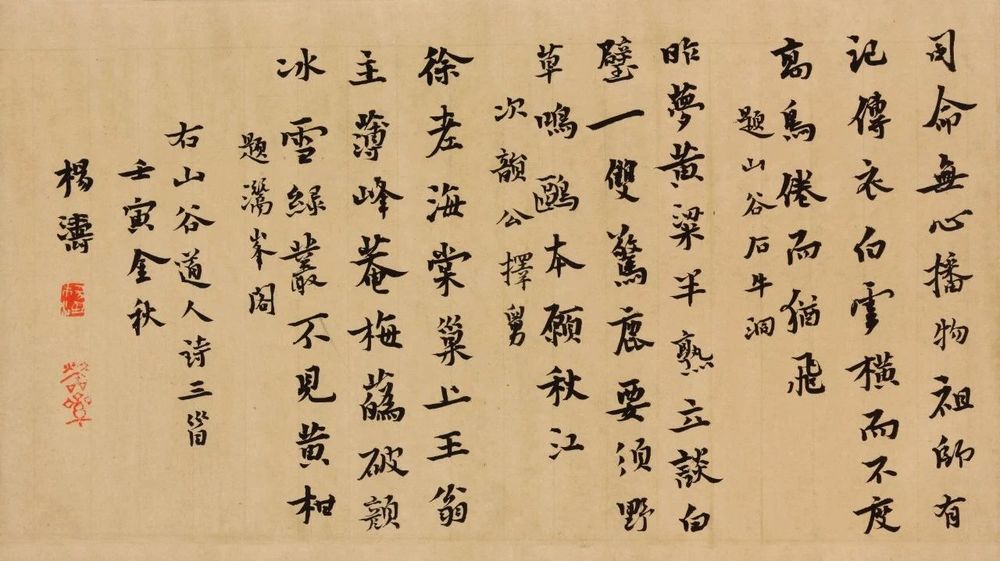 司命無心播物祖師有
記傳衣白雲橫而不度
高鳥倦而猶飛
題山谷石牛洞
昨夢黃粱半熟立談白
璧一雙驚鹿要須野
草鳴鷗本願秋江
次韻公擇舅
徐老海棠巢上王翁
主薄峰菴梅蘤破顏
冰雪綠叢不見黃柑
題灊峯閣
右山谷道人诗三首
壬寅金秋
楊濤